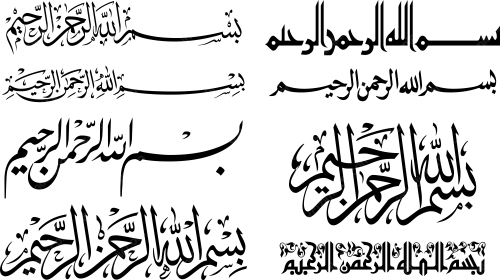 بسم الله الرحمن الرحيم
بسم الله الرحمن الرحيم
بسم الله الرحمن الرحيم
بسم الله الرحمن الرحيم
بسم الله الرحمن الرحيم
بسم الله الرحمن الرحيم
بسم الله الرحمن الرحيم
بسم الله الرحمن الرحيم